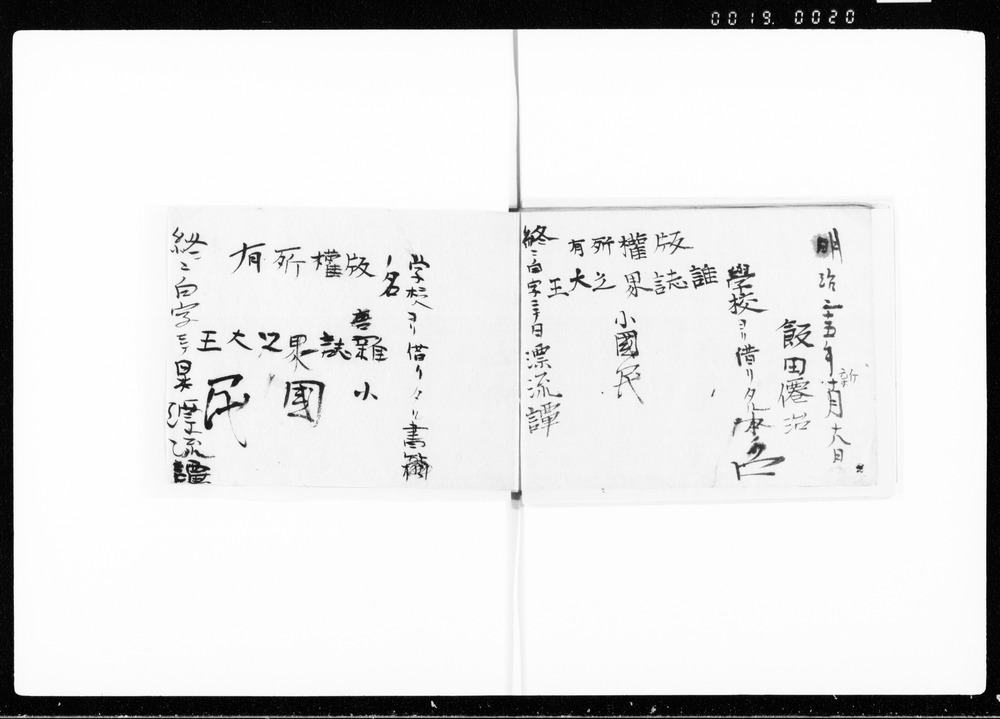 0019. 0020
明治二十五年十月十八日
新
飯田僊治
學校ヨリ借リタル本名
版權所有
誰誌界之大王
小國民
終ニ白字三十日漂流譚
学校ヨリ借リタル書籍
名
版權所有
雜誌界之大王
小國民
終ニ白字三十日漂流譚